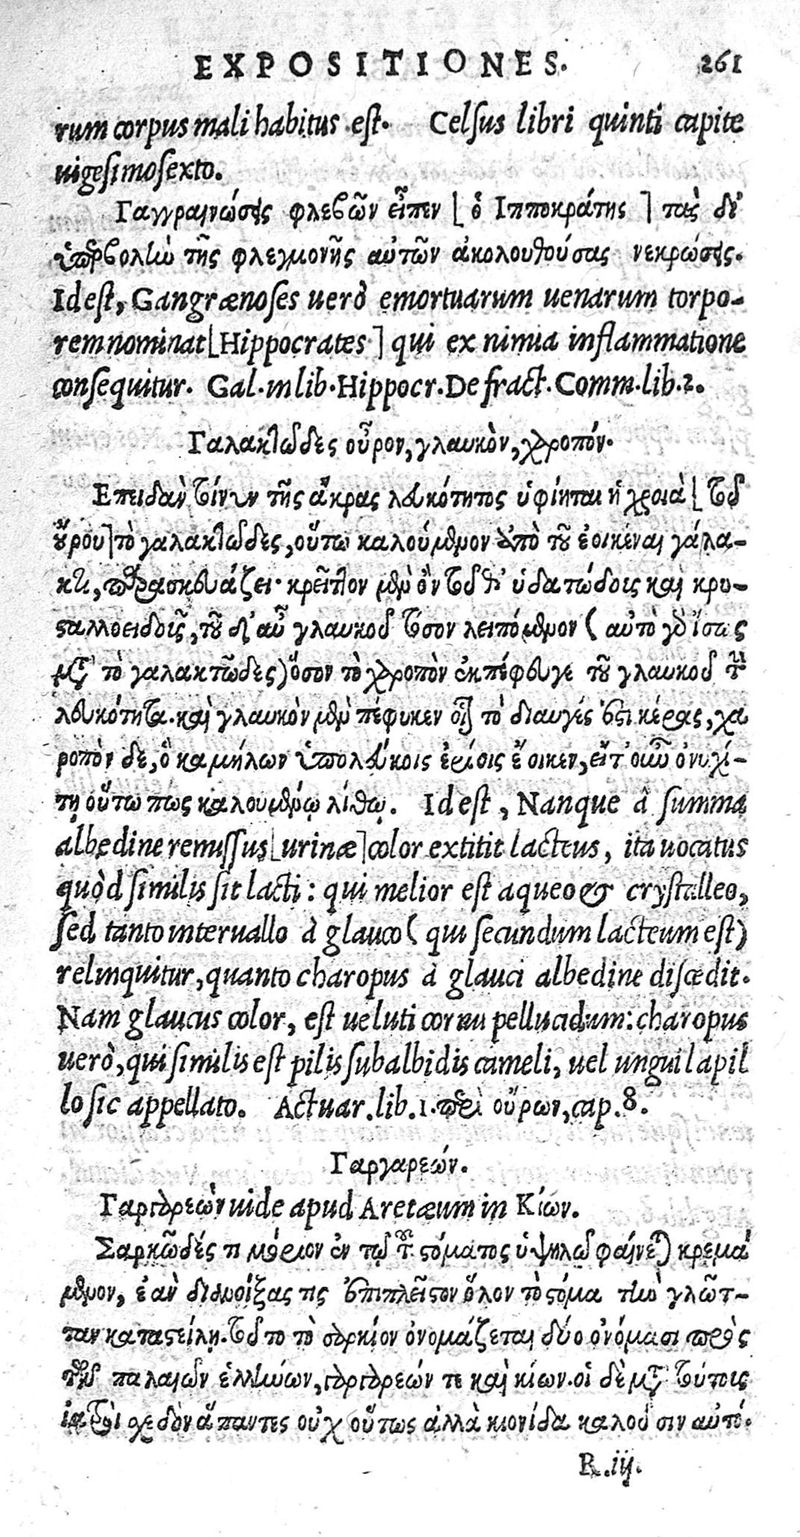 EXPOSITIONES. 261
rum corpus mali habitus est. Celsus libri quinti capite
uigesimosexto.
Γαγγραινώσεις φλεβῶν εἶπεν [ὁ Ιπποκράτης] τὰς δι'
ὑπερβολὴν τῆς φλεγμονῆς αυτῶν ἀκολουθούσας νεκρώσεις.
Id est, Gangrænoses uerò emortuarum uenarum torpo-
rem nominat [Hippocrates] qui ex nimia inflammatione
consequitur. Gal. in lib. Hippocr. De fract. Comm. lib. 2.
Γαλακτῶδες οὖρον, γλαυκὸν, χαροπόν.
Επειδὰν τοίνυν τῆς ἄκρας λευκότητος ὑφίηται ἡ χροιὰ [τοῦ
οὔρου] τὸ γαλακτῶδες, οὕτω καλούμενον ἀπὸ τοῦ ἐοικέναι γάλα-
κτι, παρασκευάζει. κρεῖττον μὲν ὂν τοῦ θ' ὑδατώδοις καὶ κρυ-
σταλλοειδοῦς, τοῦ δ' αὖ γλαυκοῦ τοσον λειπόμενον (αὐτὸ γὰρ ἴσως
μετὰ τὸ γαλακτῶδες) ὅσον τὸ χαροπὸν ἐκπέφευγε τοῦ γλαυκοῦ τὴν
λευκότητα. καὶ γλαυκὸν μὲν πέφυκεν οἷον τὸ διαυγές ἐστι κέρας, χα
ροπὸν δε, ὃ καμήλων ὑπολεύκοις ἐρίοις ἔοικεν, εἴτ' οὖν ὀνυχί-
τῃ οὕτω πως καλουμένῳ λίθῳ. Id est, Nanque â summa
albedine remissus [urinæ] color extitit lacteus, ita uocatus
quòd similis sit lacti: qui melior est aqueo & crystalleo,
sed tanto interuallo à glauco (qui secundum lacteum est)
relinquitur, quanto charopus à glauci albedine discedit.
Nam glaucus color, est ueluti cornu pellucidum: charopus
uerò, qui similis est pilis subalbidis cameli, uel ungui lapil
lo sic appellato. Actuar. lib. 1. περὶ οὔρων, cap. 8.
Γαργαρεών.
Γαργαρεὼν uide apud Aretæum in Κίων.
Σαρκῶδές τι μόριον ἐν τῷ τοῦ στόματος ὑψηλῷ φαίνεται κρεμά
μενον, ἐὰν διανοίξας τις ἐπιπλεῖστον ὅλον τὸ στόμα τὴν γλῶτ-
ταν καταστείλῃ. τοῦτο τὸ σαρκίον ὀνομάζεται δύο ὀνόμασι πρὸς
τῶν παλαιῶν ἑλλήνων, γαργαρεών τε καὶ κίων. οἱ δὲ μετὰ τούτοις
ἰατροὶ σχεδὸν ἅπαντες οὐχ οὕτως ἀλλὰ κιονίδα καλοῦσιν αὐτό.
R. iij.